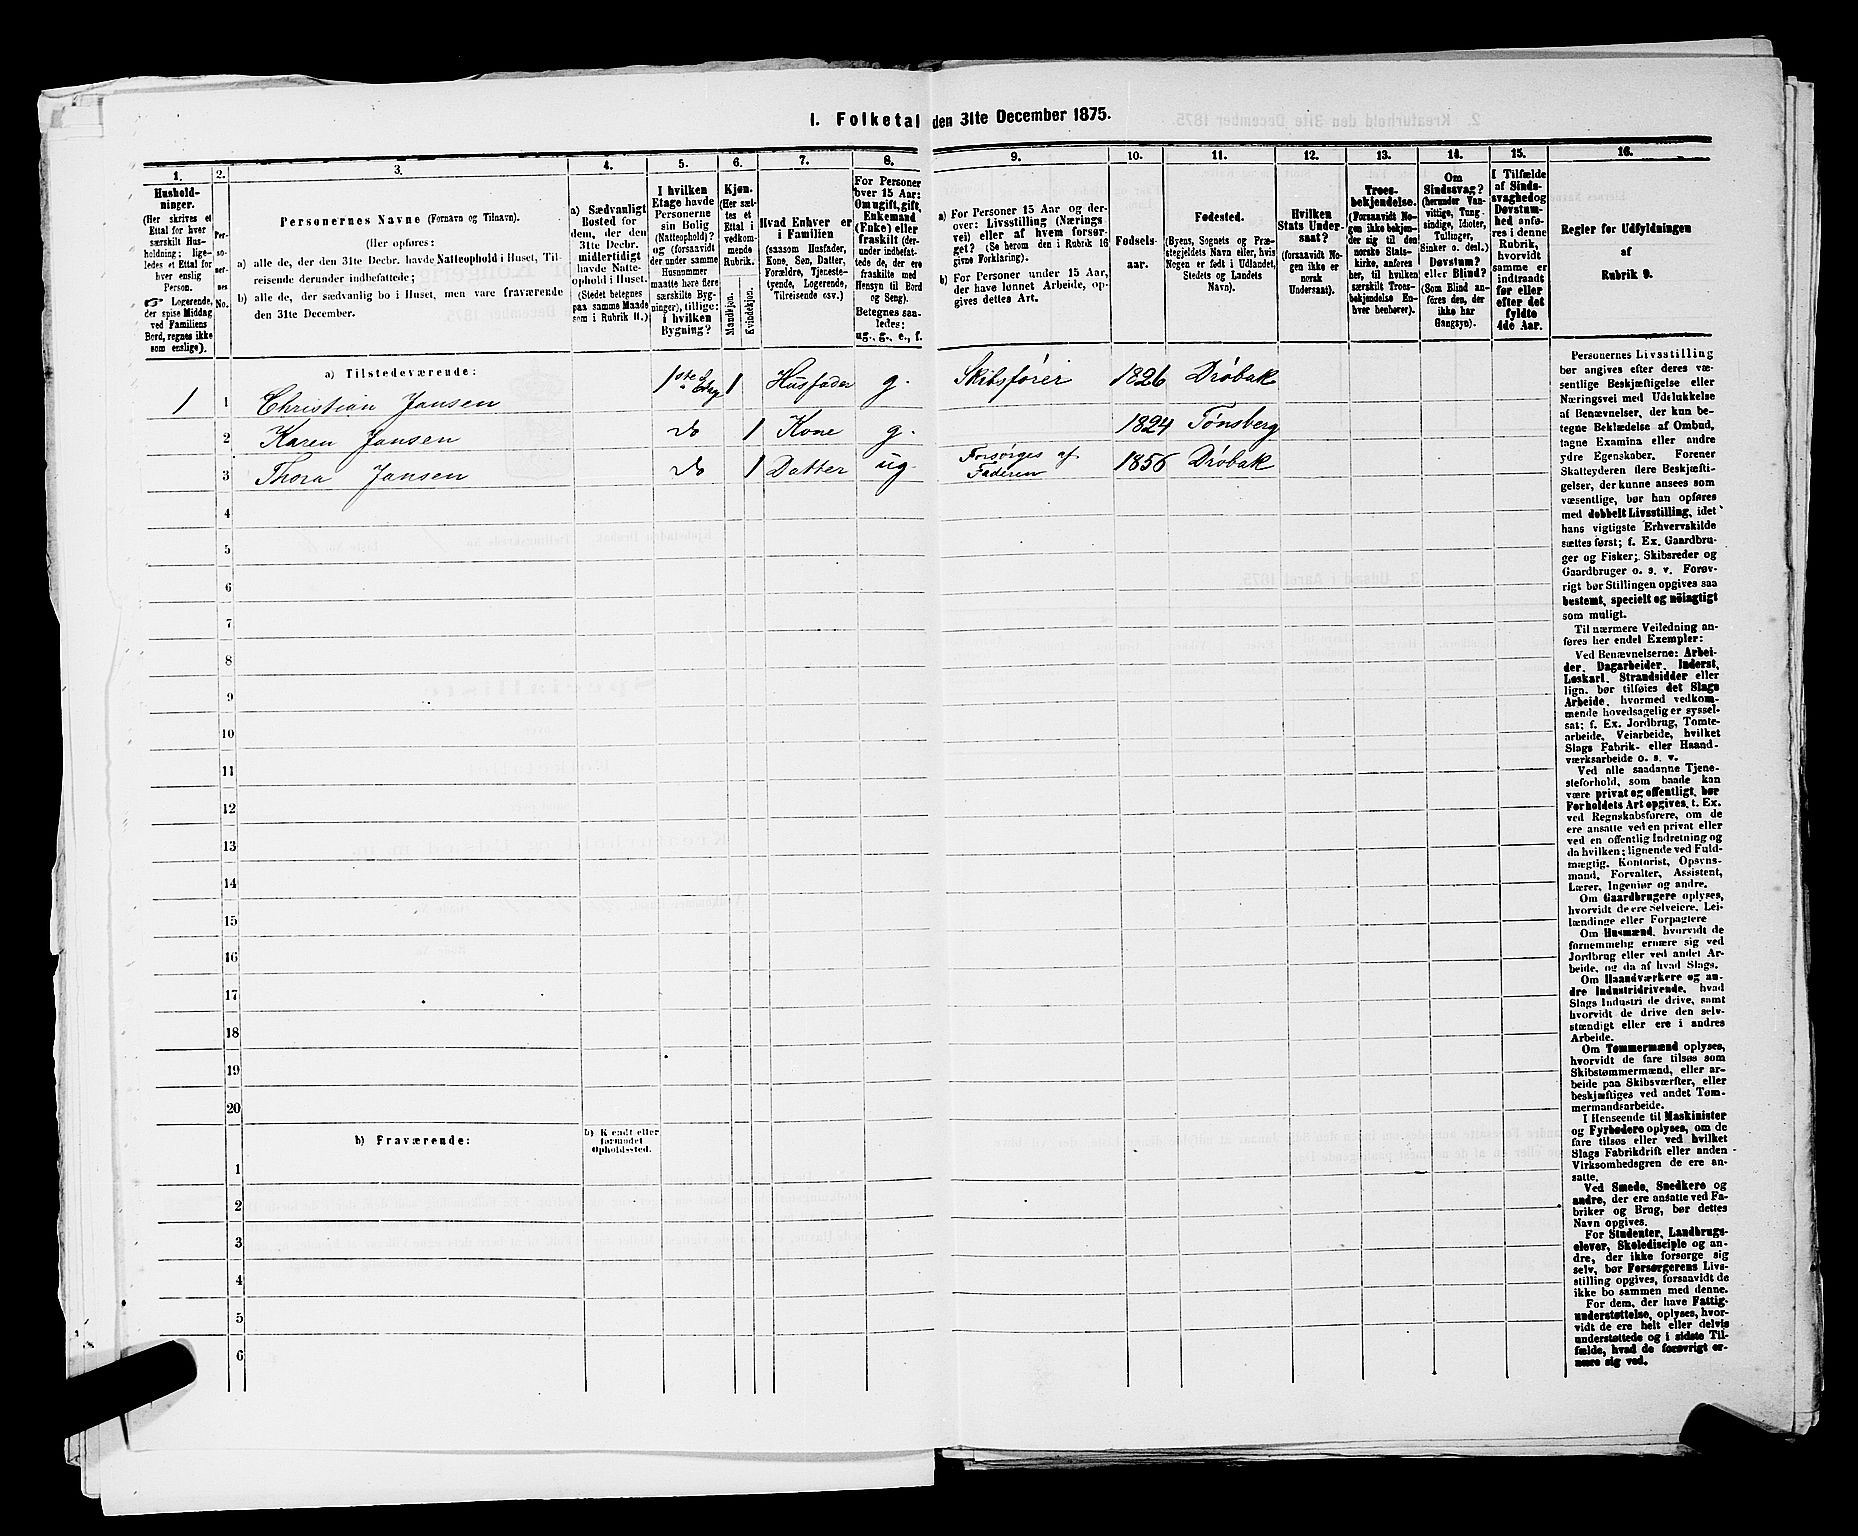 I. Folketal den 31te December 1875.
1. 2. 3. 4. 5. 6. 7. 8. 9. 10. 11. 12. 13. 14. 15. 16.
Hushold-
ninger.
(Her skrives et
Ettal for hver
særskilt Hus-
holdning; lige-
ledes et Ettal for
hver enslig
Person.
☞ Logerende,
der spise Middag
ved Familiens
Bord, regnes ikke
som enslige).
Per-
so-
ner-
nes
No.
Personernes Navne (Fornavn og Tilnavn).
(Her opføres:
a) alle de, der den 31te Decbr. havde Natteophold i Huset, Til-
reisende derunder indbefattede;
b) alle de, der sædvanlig bo i Huset, men vare fraværende
den 31te December.
a) Sædvanligt
Bosted for
dem, der den
31te Decbr.
midlertidigt
havde Natte-
ophold i Huset.
(Stedet betegnes
paa samme Maade
som i Rubrik 11.)
I hvilken
Etage havde
Personerne
sin Bolig
(Natteophold)?
og (forsaavidt
der under samme
Husnummer
maatte høre flere
særskilte Byg-
ninger), tillige:
i hvilken
Bygning?
Kjøn.
(Her sæt-
tes et
Ettal i
vedkom-
mende
Rubrik.
Mandkjøn.
Kvindekjøn.
Hvad Enhver er
i Familien
(saasom Husfader,
Kone, Søn, Datter,
Forældre, Tjeneste-
tyende, Logerende,
Tilreisende osv.)
For Personer
over 15 Aar:
Om ugift, gift,
Enkemand
(Enke) eller
fraskilt (der-
under indbefat-
tede de, der ere
fraskilte med
Hensyn til Bord
og Seng).
Betegnes saa-
ledes:
ug., g., e., f.
a) For Personer 15 Aar og der-
over: Livsstilling (Nærings-
vei) eller af hvem forsør-
get? (Se herom den i Rubrik 16
givne Forklaring).
b) For Personer under 15 Aar,
der have lønnet Arbeide, op-
gives dettes Art.
Fødsels-
aar.
Fødested.
(Byens, Sognets og Præ-
stegjeldets Navn eller, hvis
Nogen er født i Udlandet,
Stedets og Landets
Navn).
Hvilken
Stats Under-
saat?
(forsaavidt No-
gen ikke er
norsk
Undersaat).
Troes-
bekjendelse.
(Forsaavidt No-
gen ikke bekjen-
der sig til den
norske Stats-
kirke, anføres
her, til hvilken
særskilt Troes-
bekjendelse En-
hver henhører).
Om
Sindssvag?
(herunder Van-
vittige, Tung-
sindige, Idioter,
Tullinger,
Sinker o. desl.)
Døvstum?
eller Blind?
(Som Blind an-
føres den, der
ikke har
Gangsyn).
I Tilfælde
af Sinds-
svaghed og
Døvstum-
hed anfø-
res i denne
Rubrik,
hvorvidt
samme er
indtraadt
før eller
efter det
fyldte
4de Aar.
Regler for Udfyldningen
af
Rubrik 9.
a) Tilstedeværende:
1 1 Christian Jansen 1ste Etag 1 Husfader g. Skibsfører 1826 Drøbak
2 Karen Jansen do 1 Kone g. 1824 Tønsberg
3 Thora Jansen do 1 Datter ug. Forsørges af Faderen 1856 Drøbak
4
5
6
7
8
9
10
11
12
13
14
15
16
17
18
19
20
b) Fraværende:
b) Kjendt eller
formodet
Opholdssted.
1
2
3
4
5
6
Personernes Livsstilling
bør angives efter deres væ-
sentlige Beskjæftigelse eller
Næringsvei med Udelukkelse
af Benævnelser, der kun be-
tegne Beklædelse af Ombud,
tagne Examina eller andre
ydre Egenskaber. Forener
Skatteyderen flere Beskjæfti-
gelser, der kunne ansees som
væsentlige, bør han opføres
med dobbelt Livsstilling, idet
hans vigtigste Erhvervskilde
sættes først; f. Ex. Gaardbru-
ger og Fisker; Skibsreder og
Gaardbruger o. s. v. Forøv-
rigt bør Stillingen opgives saa
bestemt, specielt og nöiagtigt
som muligt.
Til nærmere Veiledning an-
føres her endel Exempler:
Ved Benævnelserne: Arbei-
der, Dagarbeider, Inderst,
Løskarl, Strandsidder eller
lign. bør tilføies det Slags
Arbeide, hvormed vedkom-
mende hovedsagelig er syssel-
sat; f. Ex. Jordbrug, Tomte-
arbeide, Veiarbeide, hvilket
Slags Fabrik- eller Haand-
værksarbeide o. s. v.
Ved alle saadanne Tjene-
steforhold, som baade kan
være privat og offentligt, bør
Forholdets Art opgives, t. Ex.
ved Regnskabsførere, om de
ere ansatte ved en privat eller
ved en offentlig Indretning og
da hvilken; lignende ved Fuld-
mægtig, Kontorist, Opsyns-
mand, Forvalter, Assistent,
Lærer, Ingeniør og andre.
Om Gaardbrugere oplyses,
hvorvidt de ere Selveiere, Lei-
lændinge eller Forpagtere
Om Husmænd, hvorvidt de
fornemmelig ernære sig ved
Jordbrug eller ved andet Ar-
beide, og da af hvad Slags.
Om Haandværkere og an-
dre Industridrivende, hvad
Slags Industri de drive, samt
hvorvidt de drive den selv-
stændigt eller ere i andres
Arbeide.
Om Tømmermænd oplyses,
hvorvidt de fare tilsøs som
Skibstømmermænd, eller ar-
beide paa Skibsværfter, eller
beskjæftiges ved andet Tøm-
mermandsarbeide.
I Henseende til Maskinister
og Fyrbødere oplyses, om de
fare tilsøs eller ved hvilket
Slags Fabrikdrift eller anden
Virksomhedsgren de ere an-
satte.
Ved Smede, Snedkere og
andre, der ere ansatte ved Fa-
briker og Brug, bør dettes
Navn opgives.
For Studenter, Landbrugs-
elever, Skoledisciple og an-
dre, der ikke forsørge sig
selv, bør Forsørgerens Livs-
stilling opgives, forsaavidt de
ikke bo sammen med denne.
For dem, der have Fattig-
understøttelse, oplyses, hvor-
vidt de ere helt eller delvis
understøttede og i sidste Til-
fælde, hvad de forøvrigt er-
nære sig ved.